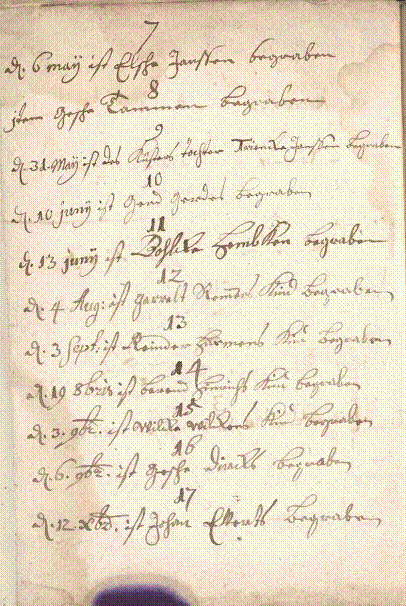 7
d. 6 may ist Elsche Janssen begraben
8
item Gesche Tammen begraben
9
d. 31. May ist des Küsters tochter Trincke Janssen begraben
10
d. 10 juny ist Gerd Gerdes begraben
11
d. 13 juny ist begraben
12
d. 4 Aug: ist Garrelt Kind begraben
13
d. 3 Sept: ist Reinder Harmens Kind begraben
14
d. 19 8bris ist berend Hinrichs Kind begraben
15
d. 3. 9br. ist Wilcke Wilckens Kind begraben
16
d. 6. 9br. ist Gesche Diircks begraben
17
d. 12 Xbr. ist Johan Eilerts begraben